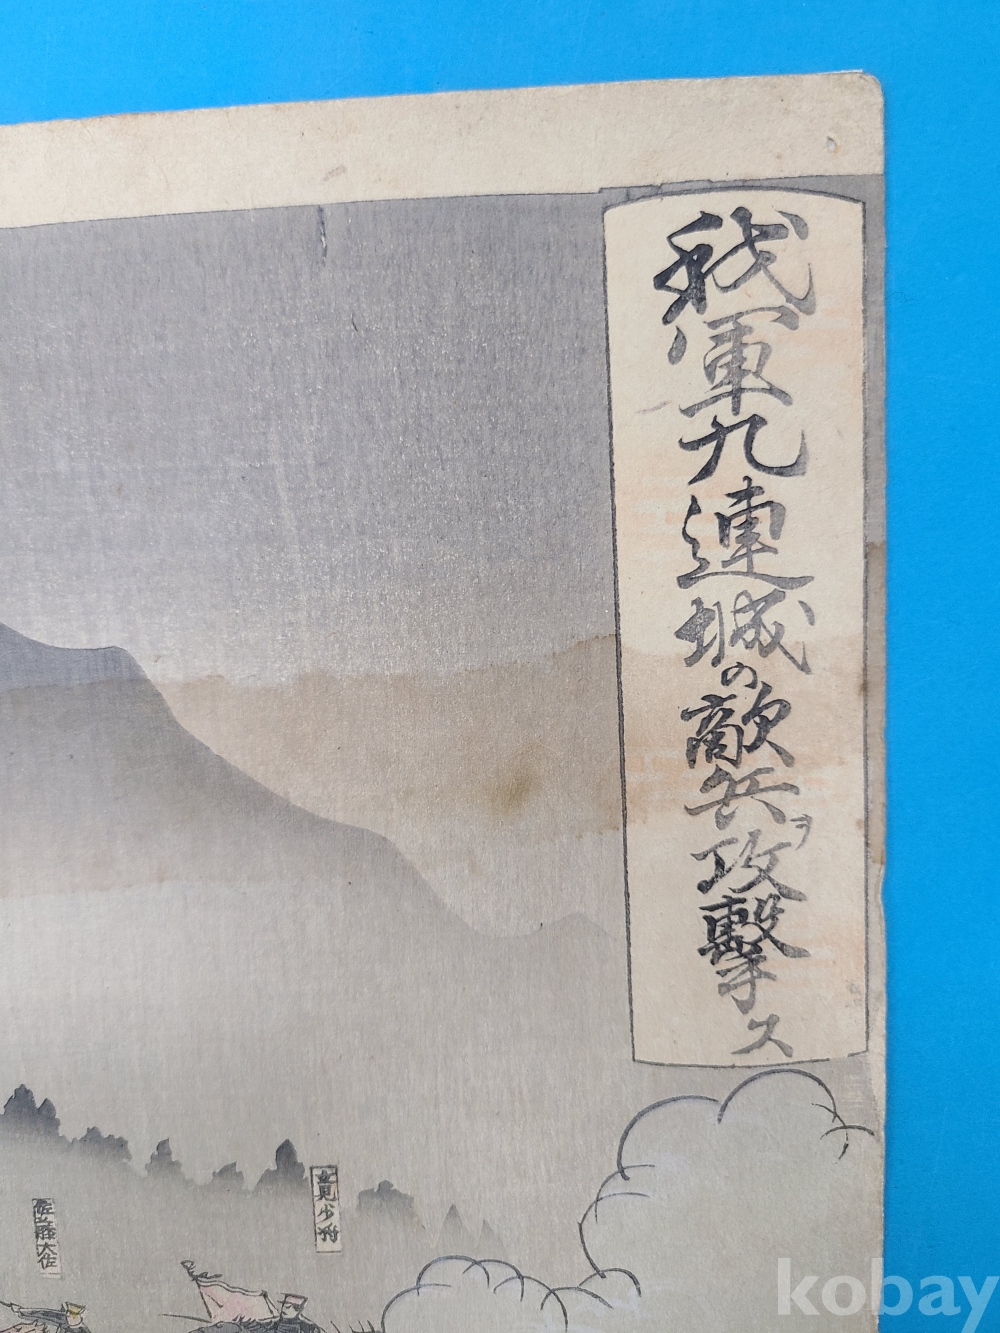 我軍九連城の敵兵ヲ攻撃ス
立見少将
佐藤大佐
kobay